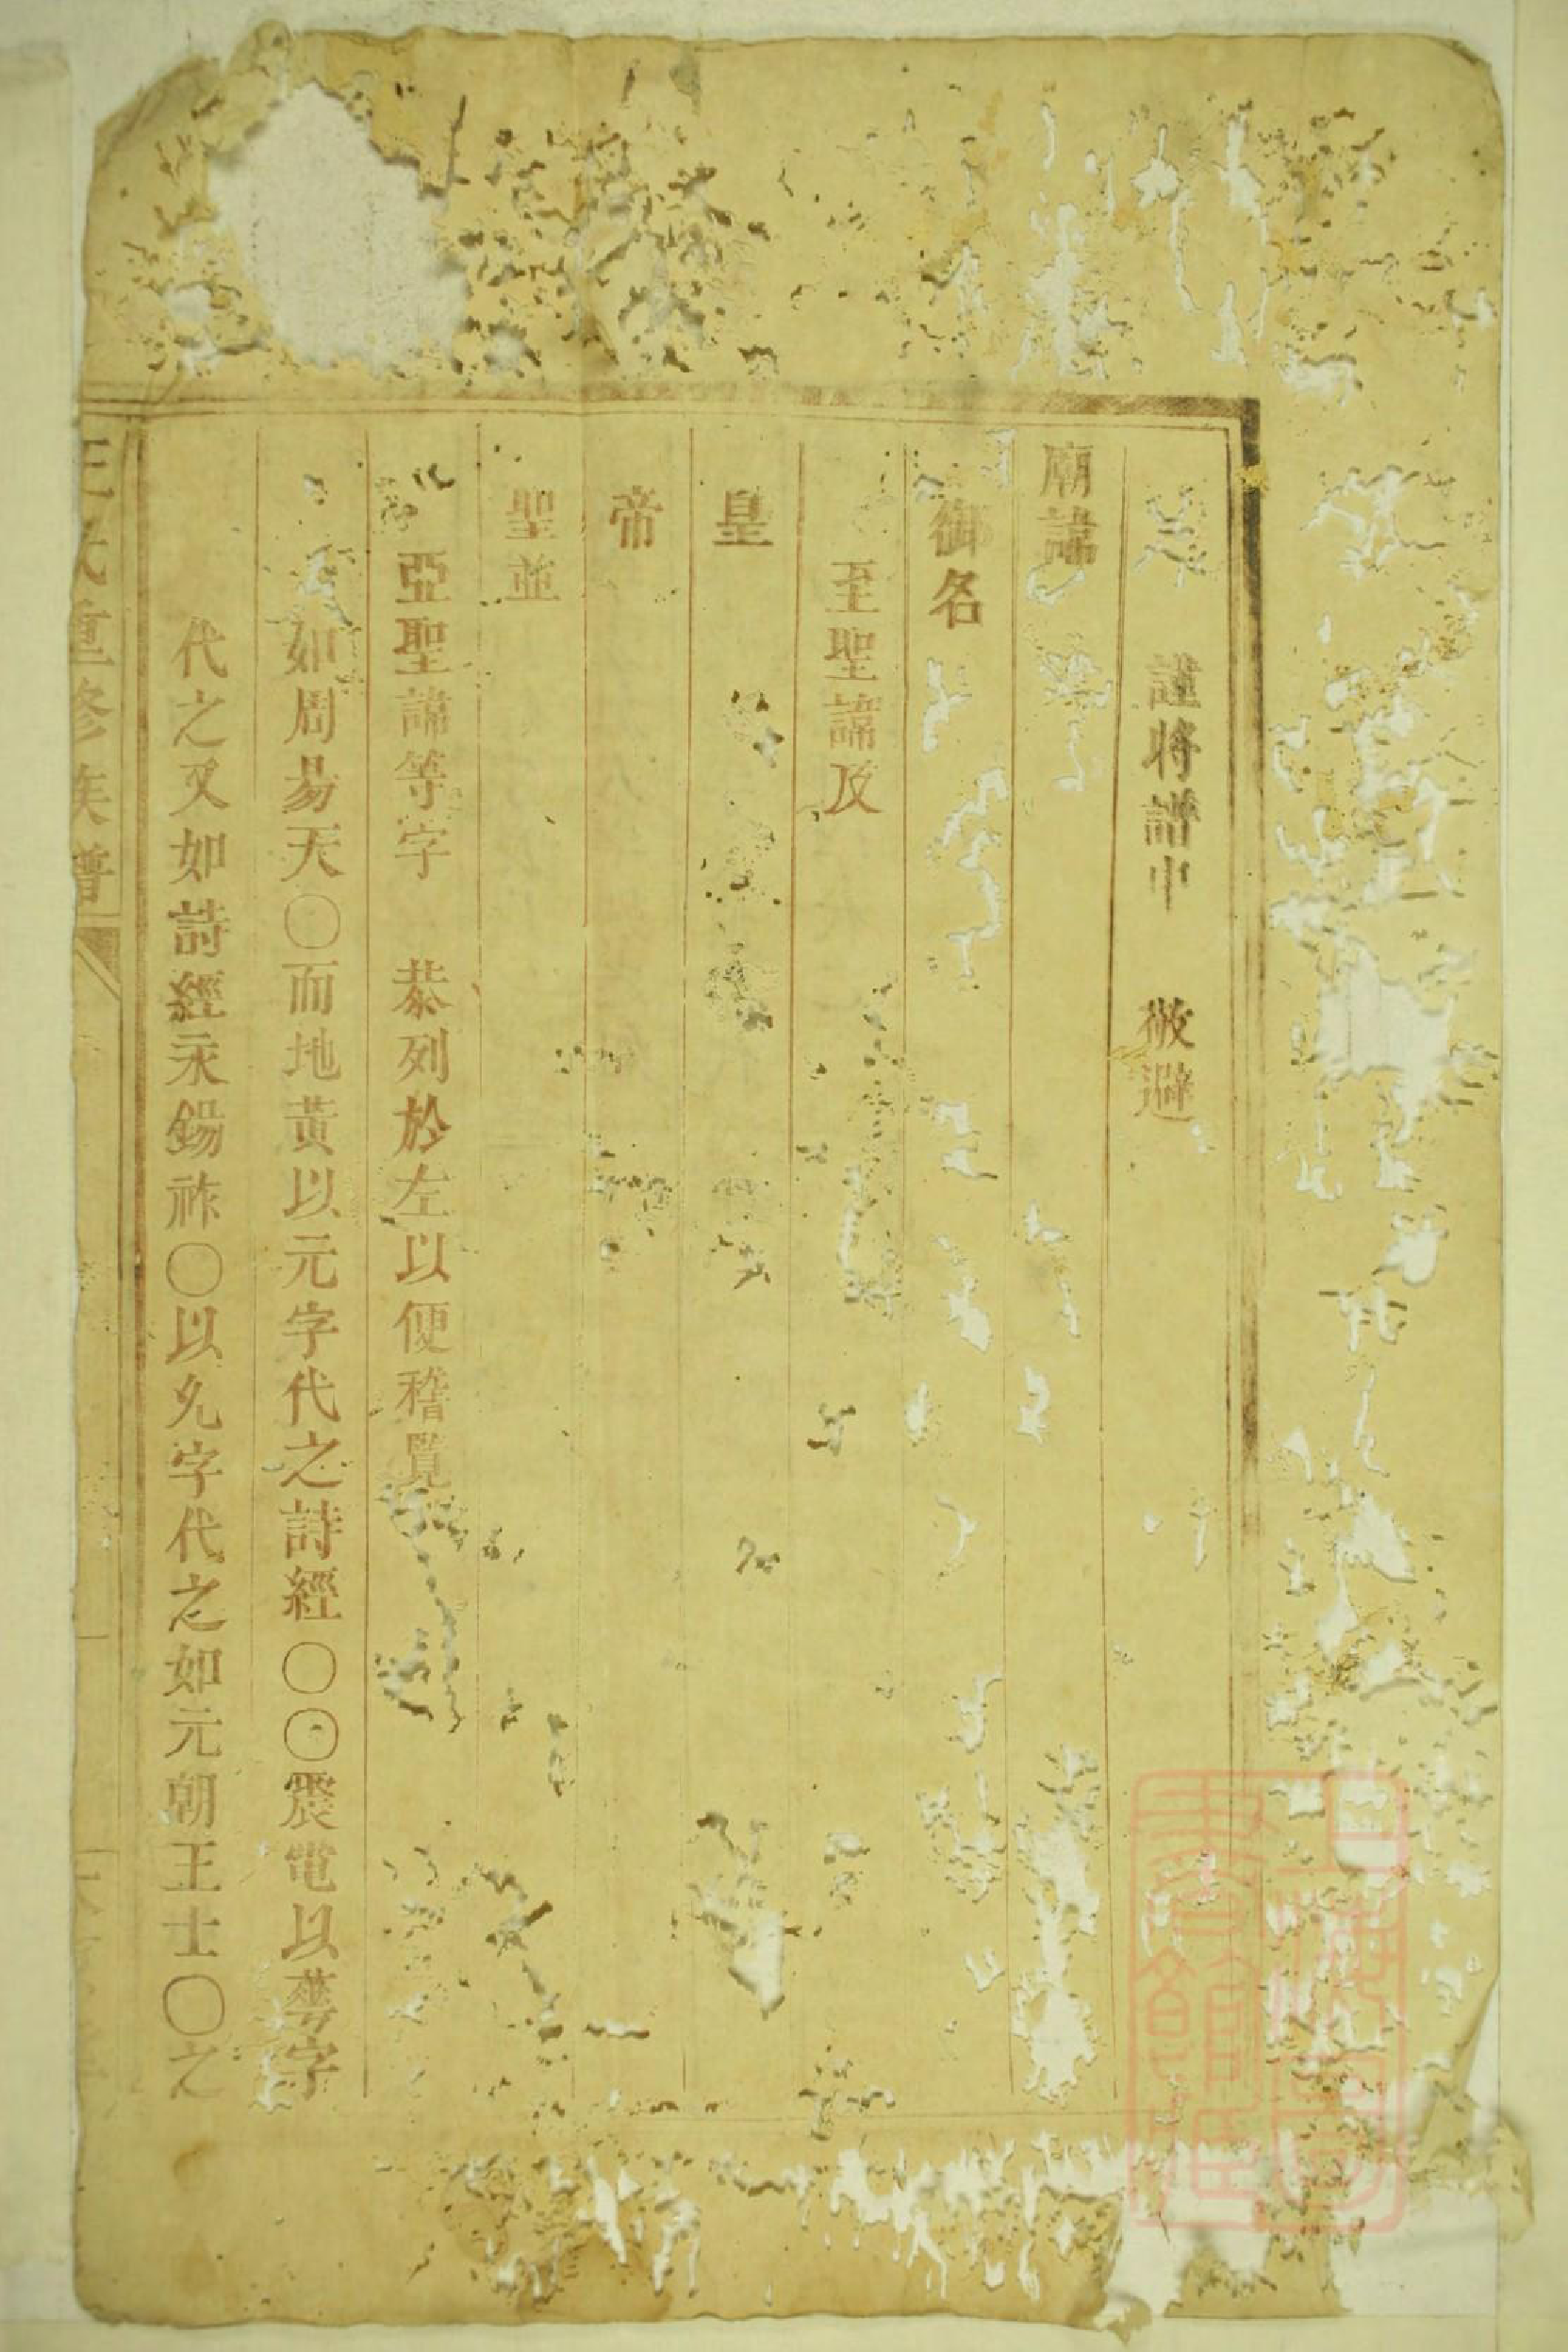 謹將譜中　敬避
廟諱
御名
至聖諱及
皇
帝
聖並
亞聖諱等字　恭列於左以便稽覽
如周易天〇而地黃以元字代之詩經〇〇震電以爗字
代之又如詩經永錫祚〇以允字代之如元朝王士〇之
王氏重修族譜
上海圖書館藏